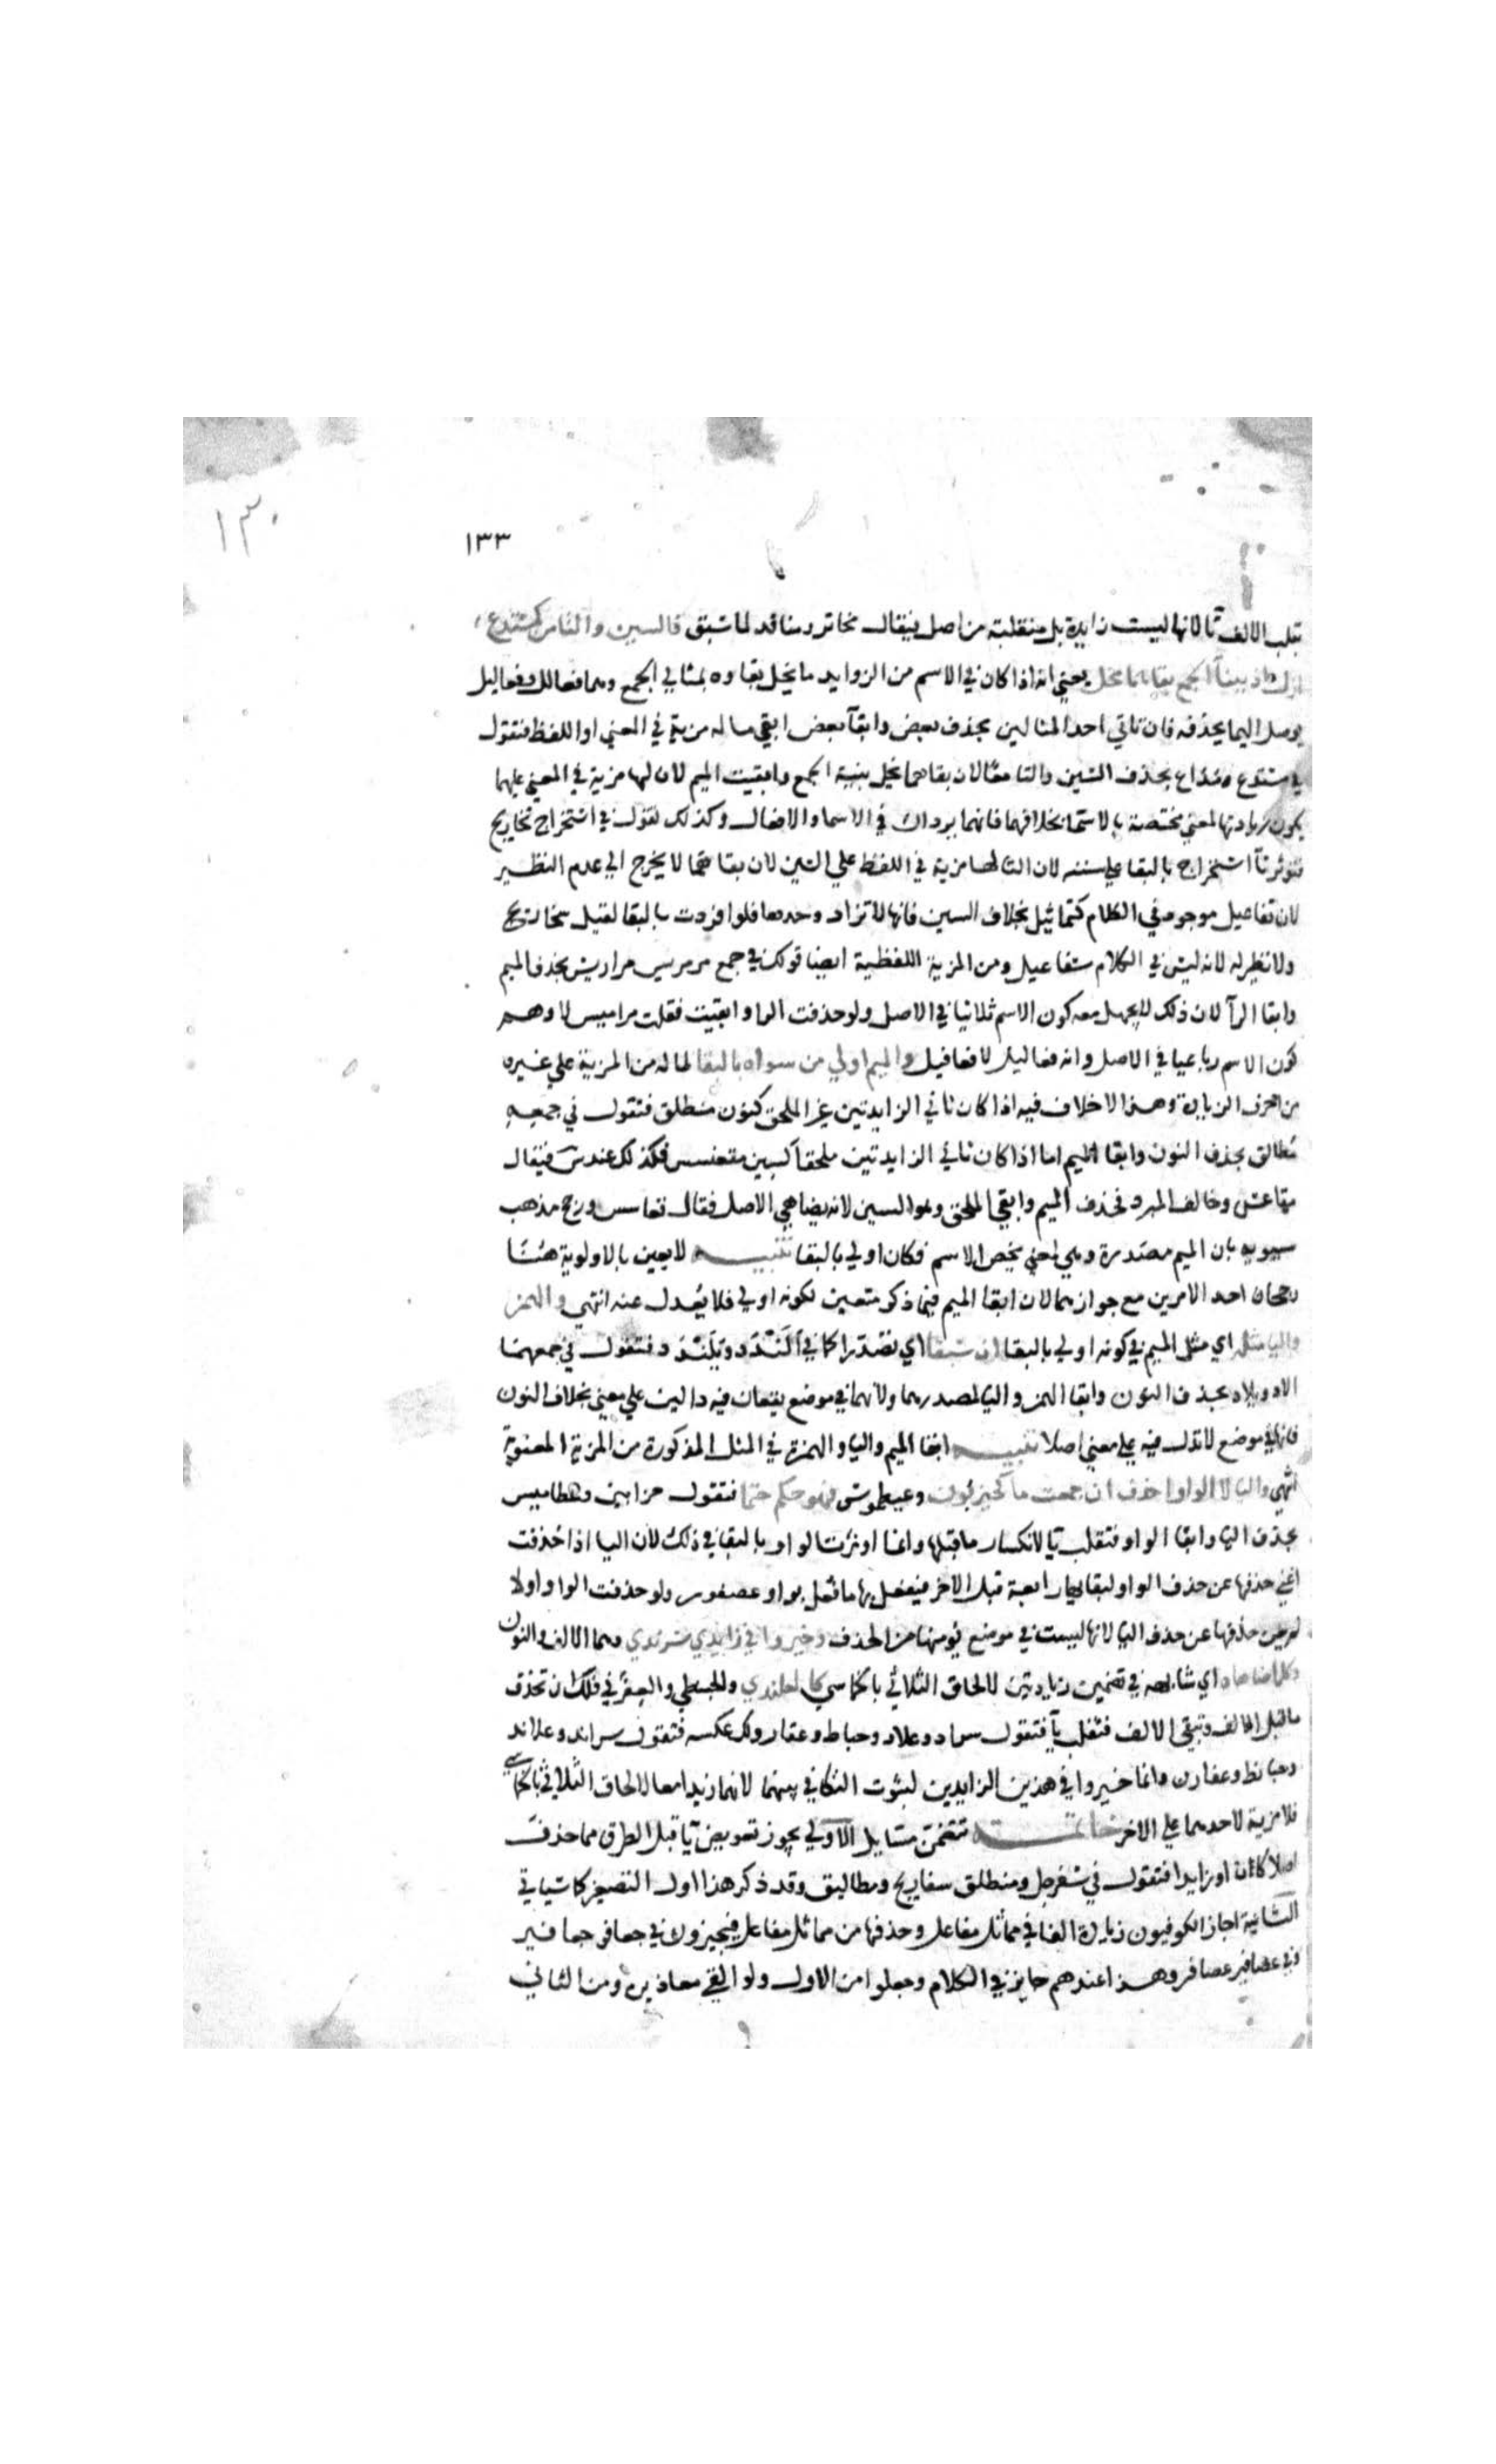 ١٣٠
١٣٣
تقلب الالف يآ لانها ليست زايدة بل منقلبة من اصل فيقال مخاتر ومناقد لما سبق فالسين والتا من كمستدع
ازل اذ ببنا الجمع بقاهما مخل يعني انه اذا كان في الاسم من الزوايد ما يخل بقاوه بمثالي الجمع وهما فعالل وفعاليل
يوصل اليهما بحذفه فان تاتي احد المثالين بحذف بعض وابقآ بعض ابقي ما له مزية في المعني او اللفظ فتقول
في مستدع مداع بحذف السين والتا معًا لان بقاهما يخل ببنية الجمع وابقيت الميم لان لها مزية في المعني عليهما
بكون زيادتها لمعني مختصة بالاسما بخلافهما فانهما يزدان في الاسما والافعال وكذلك تقول في استخراج تخاريج
فتوثر تآ استخراج بالبقا علي سينه لان التا لها مزية في اللفظ علي السين لان بقاهما لا يخرج الي عدم النظير
لان تفاعيل موجود في الكلام كتماثيل بخلاف السين فانها لا تزاد وحدها فلو افردت بالبقا لقيل سخاريج
ولا نظير له لانه ليس في الكلام سفاعيل ومن المزية اللفظية ايضا قولك في جمع مرمريس مراريس بحذف الميم
وابقا الرآ لان ذلك لا يجهل معه كون الاسم ثلاثيا في الاصل ولو حذفت الرا وابقيت فقلت مراميس لاوهم
كون الاسم رباعيا في الاصل وانه فعاليل لا فعافيل والميم اولي من سواه بالبقا لما له من المزية علي غيره
من احرف الزيادة وهذا لا خلاف فيه اذا كان ثاني الزايدتين غير الملحق كنون منطلق فتقول في جمعه
مطالق بحذف النون وابقا الميم اما اذا كان ثاني الزايدتين ملحقا كسين مقعنسس فكذلك عند س فيقال
مقاعس وخالف المبرد فحذف الميم وابقي الملحق وهو السين لانه يضاهي الاصل فقال قعاسس ورجح مذهب
سيبويه بان الميم مصدرة وهي لمعني يخص الاسم فكان اولي بالبقا تنبيه لا يعين بالاولوية هنا
رجحان احد الامرين مع جوازهما لان ابقا الميم فيما ذكر متعين لكونه اولي فلا يعدل عنه انتهي والهمز
واليا مثله اي مثل الميم في كونه اولي بالبقا ان سبقا اي تصدرا كما في الندد ويلندد فتقول في جمعهما
الاد ويلاد بحذف النون وابقا الهمز واليا لتصدرهما ولانهما في موضع يقعان فيه دالين علي معني بخلاف النون
فانها في موضع لا تدل فيه علي معني اصلا تنبيه ابقا الميم واليا والهمزة في المثل المذكورة من المزية المعنوية
انتهي واليا لا الواو احذف ان جمعت ما كحيزبون وعيطموس فهو حكم حتما فتقول حزابين وعطاميس
بحذف اليا وابقا الواو فتقلب يا لانكسار ما قبلها وانما اوثرت الواو بالبقا في ذلك لان اليا اذا حذفت
اغني حذفها عن حذف الواو لبقايها رابعة قبل الاخر فيفعل بها ما فعل بواو عصفور ولو حذفت الواو اولا
لم يغن حذفها عن حذف اليا لانها ليست في موضع يومنها من الحذف وخيروا في زايدي سرندي وهما الالف والنون
وكل ما ضاهاه اي شابهه في تضمين زيادتين لالحاق الثلاثي بالخماسي كالعلندي والحبنطي والعفرني فلك ان تحذف
ما قبل الالف وتبقي الالف فتقلب يآ فتقول سراد وعلاد وحباط وعفار ولك عكسه فتقول سراند وعلاند
وحبانط وعفارن وانما خيروا في هذين الزايدين لثبوت التكافي بينهما لانهما زيدا معا لالحاق الثلاثي بالخماسي
فلا مزية لاحدهما علي الاخر خاتمة تتضمن مسايل الاولي يجوز تعويض يآ قبل الطرف مما حذف
اصلا كان او زايدا فتقول في سفرجل ومنطلق سفاريج ومطاليق وقد ذكر هذا اول التصغير كما سياتي
الثانية اجاز الكوفيون زيادة اليا في مماثل مفاعل وحذفها من مماثل مفاعيل فيجيزون في جعافر جعافير
وفي عصافير عصافر وهذا عندهم جايز في الكلام وجعلوا من الاول ولو القي معاذيره ومن الثاني